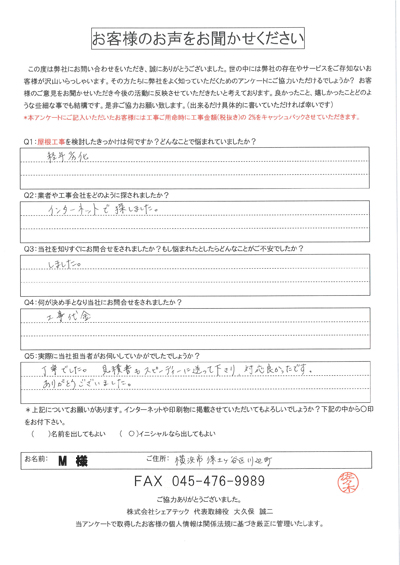 お客様のお声をお聞かせください
この度は弊社にお問い合わせをいただき、誠にありがとうございました。世の中には弊社の存在やサービスをご存知ないお
客様が沢山いらっしゃいます。その方たちに弊社をよく知っていただくためのアンケートにご協力いただけるでしょうか？ お客
様のご意見をお聞かせいただき今後の活動に反映させていただきたいと考えております。良かったこと、嬉しかったことどのよ
うな些細な事でも結構です。是非ご協力お願い致します。（出来るだけ具体的に書いていただければ幸いです）
*本アンケートにご記入いただいたお客様には工事ご用命時に工事金額(税抜き)の 2%をキャッシュバックさせていただきます。
Q1：屋根工事を検討したきっかけは何ですか？どんなことで悩まれていましたか？
経年劣化
Q2：業者や工事会社をどのように探されましたか？
インターネットで探しました。
Q3：当社を知りすぐにお問合せをされましたか？もし悩まれたとしたらどんなことがご不安でしたか？
しました。
Q4：何が決め手となり当社にお問合せをされましたか？
工事代金
Q5：実際に当社担当者がお伺いしていかがでしたでしょうか？
丁寧でした。見積書もスピーディーに送って下さり、対応良かったです。
ありがとうございました。
＊上記についてお願いがあります。インターネットや印刷物に掲載させていただいてもよろしいでしょうか？下記の中から〇印
をお付下さい。
（　）名前を出してもよい　（ 〇 ）イニシャルなら出してもよい
お名前： M 様 ご住所： 横浜市保土ヶ谷区川辺町
FAX 045-476-9989
ご協力ありがとうございました。
株式会社シェアテック 代表取締役 大久保 誠二
当アンケートで取得したお客様の個人情報は関係法規に基づき厳正に管理いたします。